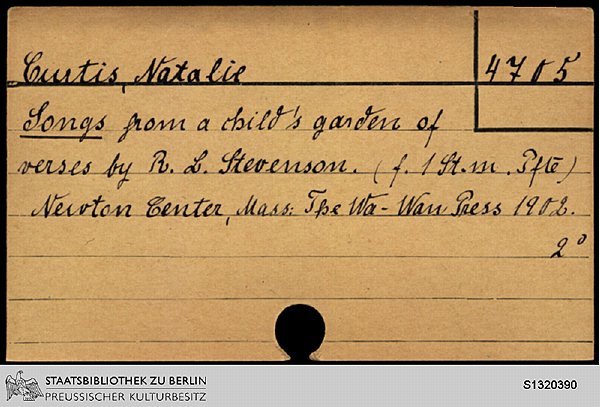 Curtis, Natalie
4705
Songs from a child's garden of
verses by R. L. Stevenson. (f. 1 St. m. Pfte)
Newton Center, Mass: The Wa-Wan Press 1902.
2°
STAATSBIBLIOTHEK ZU BERLIN
PREUSSISCHER KULTURBESITZ
S1320390